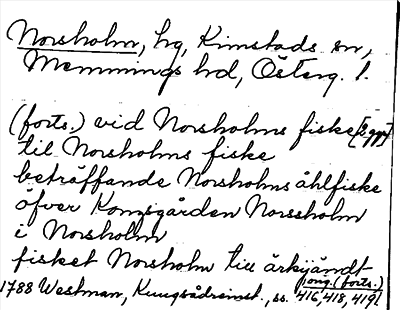 Norsholm, hg, Kimstads sn,
Memmings hd, Österg. l.
(forts.) vid Norsholms fiske [2 ggr]
til Norsholms fiske
beträffande Norsholms åhlfiske
öfver Kongsgården Norssholm
i Norsholm
fisket Norsholm till ärkjändt
pong. (forts.)
1788 Westman, Kungsådreinst., ss. 416, 418, 419